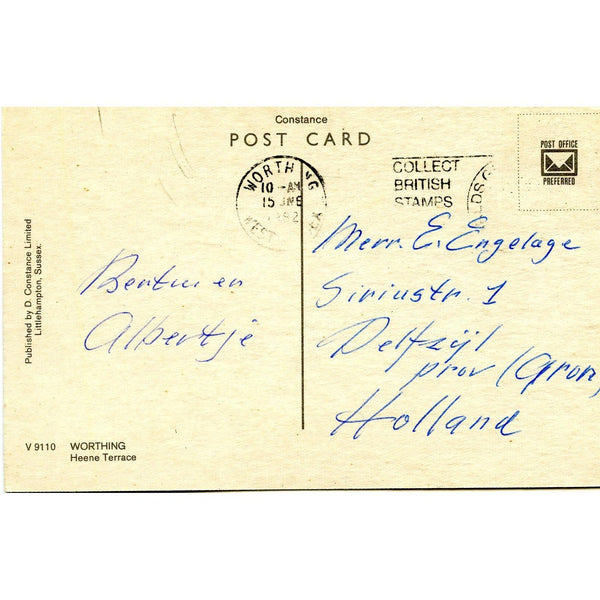 Constance
POST CARD
POST OFFICE
PREFERRED
WORTHING
10 - AM
15 JNE
1982
WEST
COLLECT
BRITISH
STAMPS
Published by D. Constance Limited
Littlehampton, Sussex.
Bertus en
Albertje
Merr. E. Engelage
Siriustr. 1
Delfzijl
prov (Gron
Holland
V 9110 WORTHING
Heene Terrace